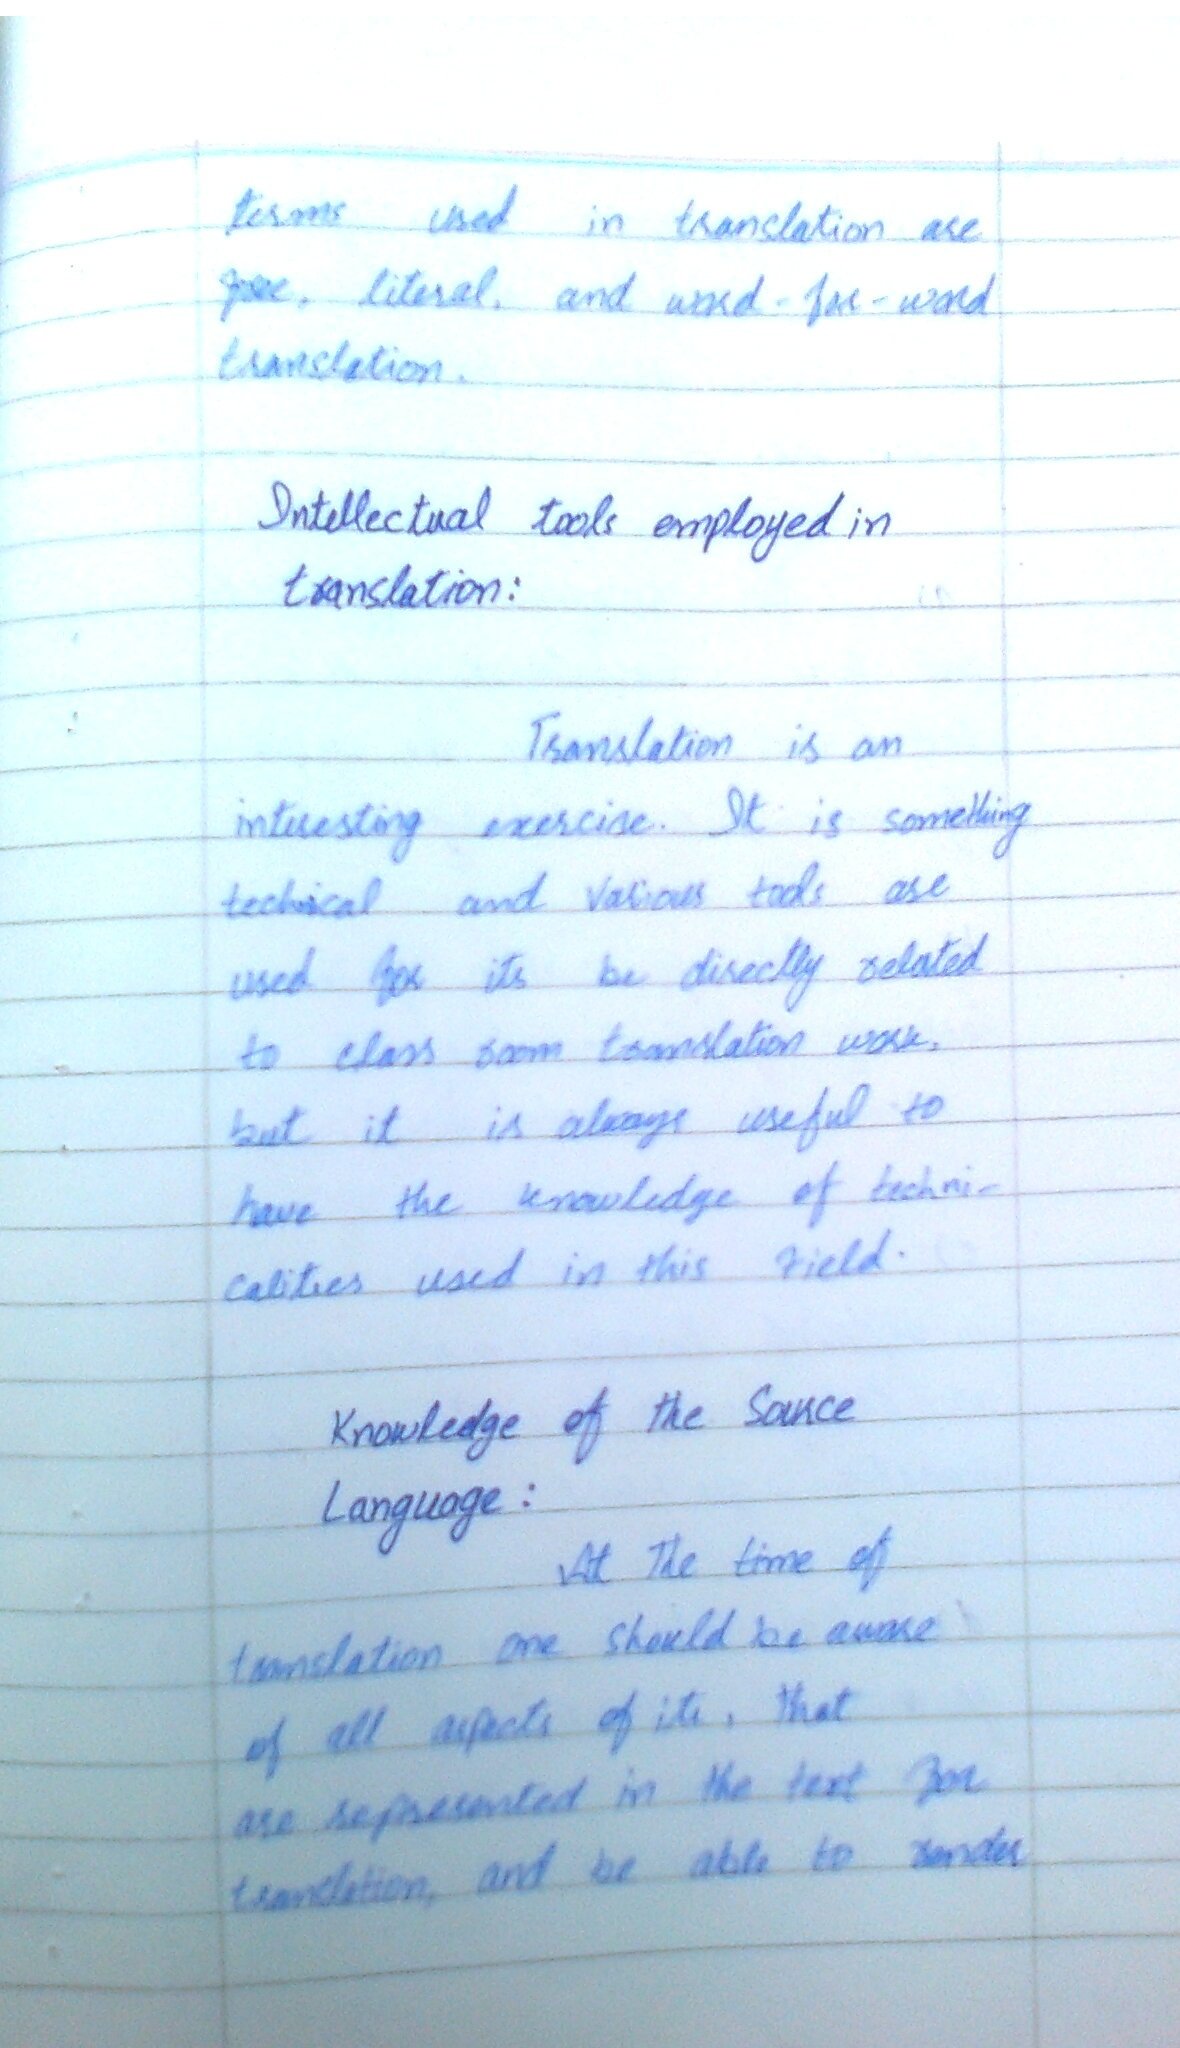 terms used in translation are
free, literal, and word-for-word
translation.
Intellectual tools employed in
translation:
Translation is an
interesting exercise. It is something
technical and various tools are
used for its be directly related
to class room translation work,
but it is always useful to
have the knowledge of techni-
calities used in this field.
Knowledge of the Source
Language:
At The time of
translation one should be aware
of all aspects of its, that
are represented in the text for
translation, and be able to render